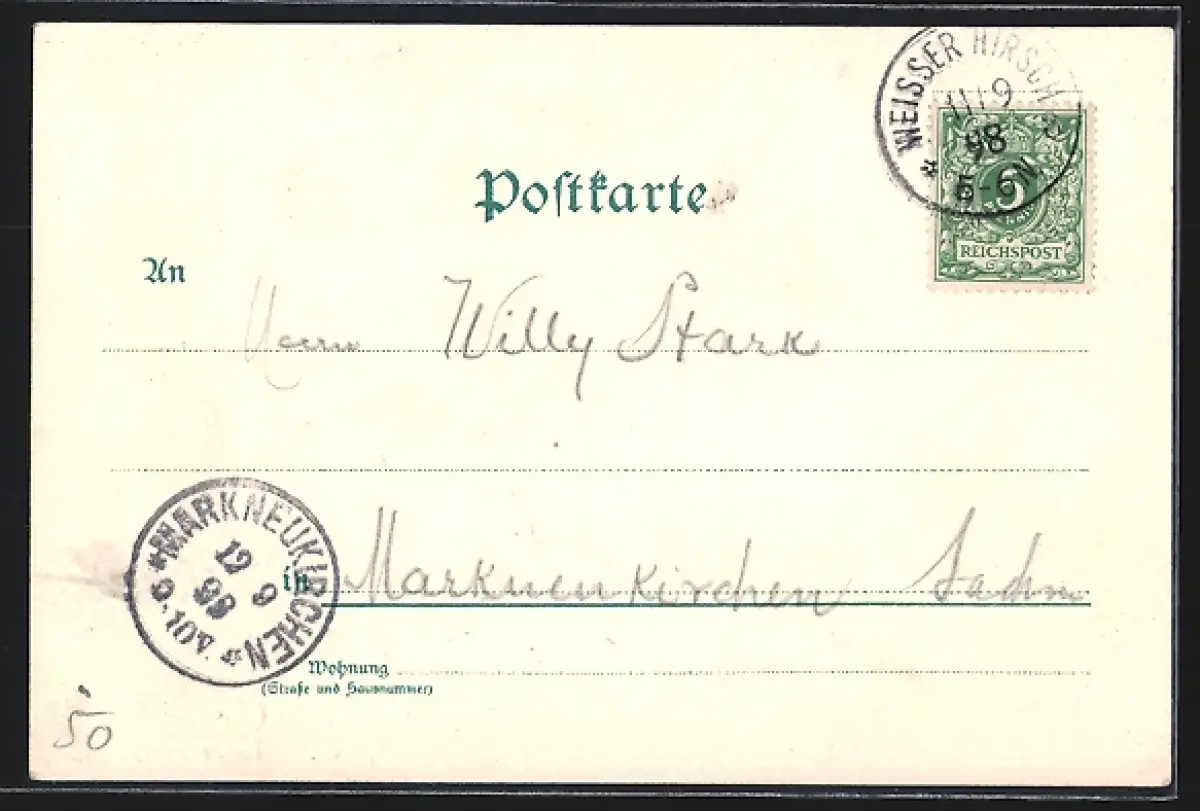 WEISSER HIRSCH
11/9
98
5-6N.
5
REICHSPOST
Postkarte
An
Herrn Willy Stark
MARKNEUKIRCHEN
12 9
98
in Markneukirchen Sachsn
Wohnung
(Straße und Hausnummer)
50